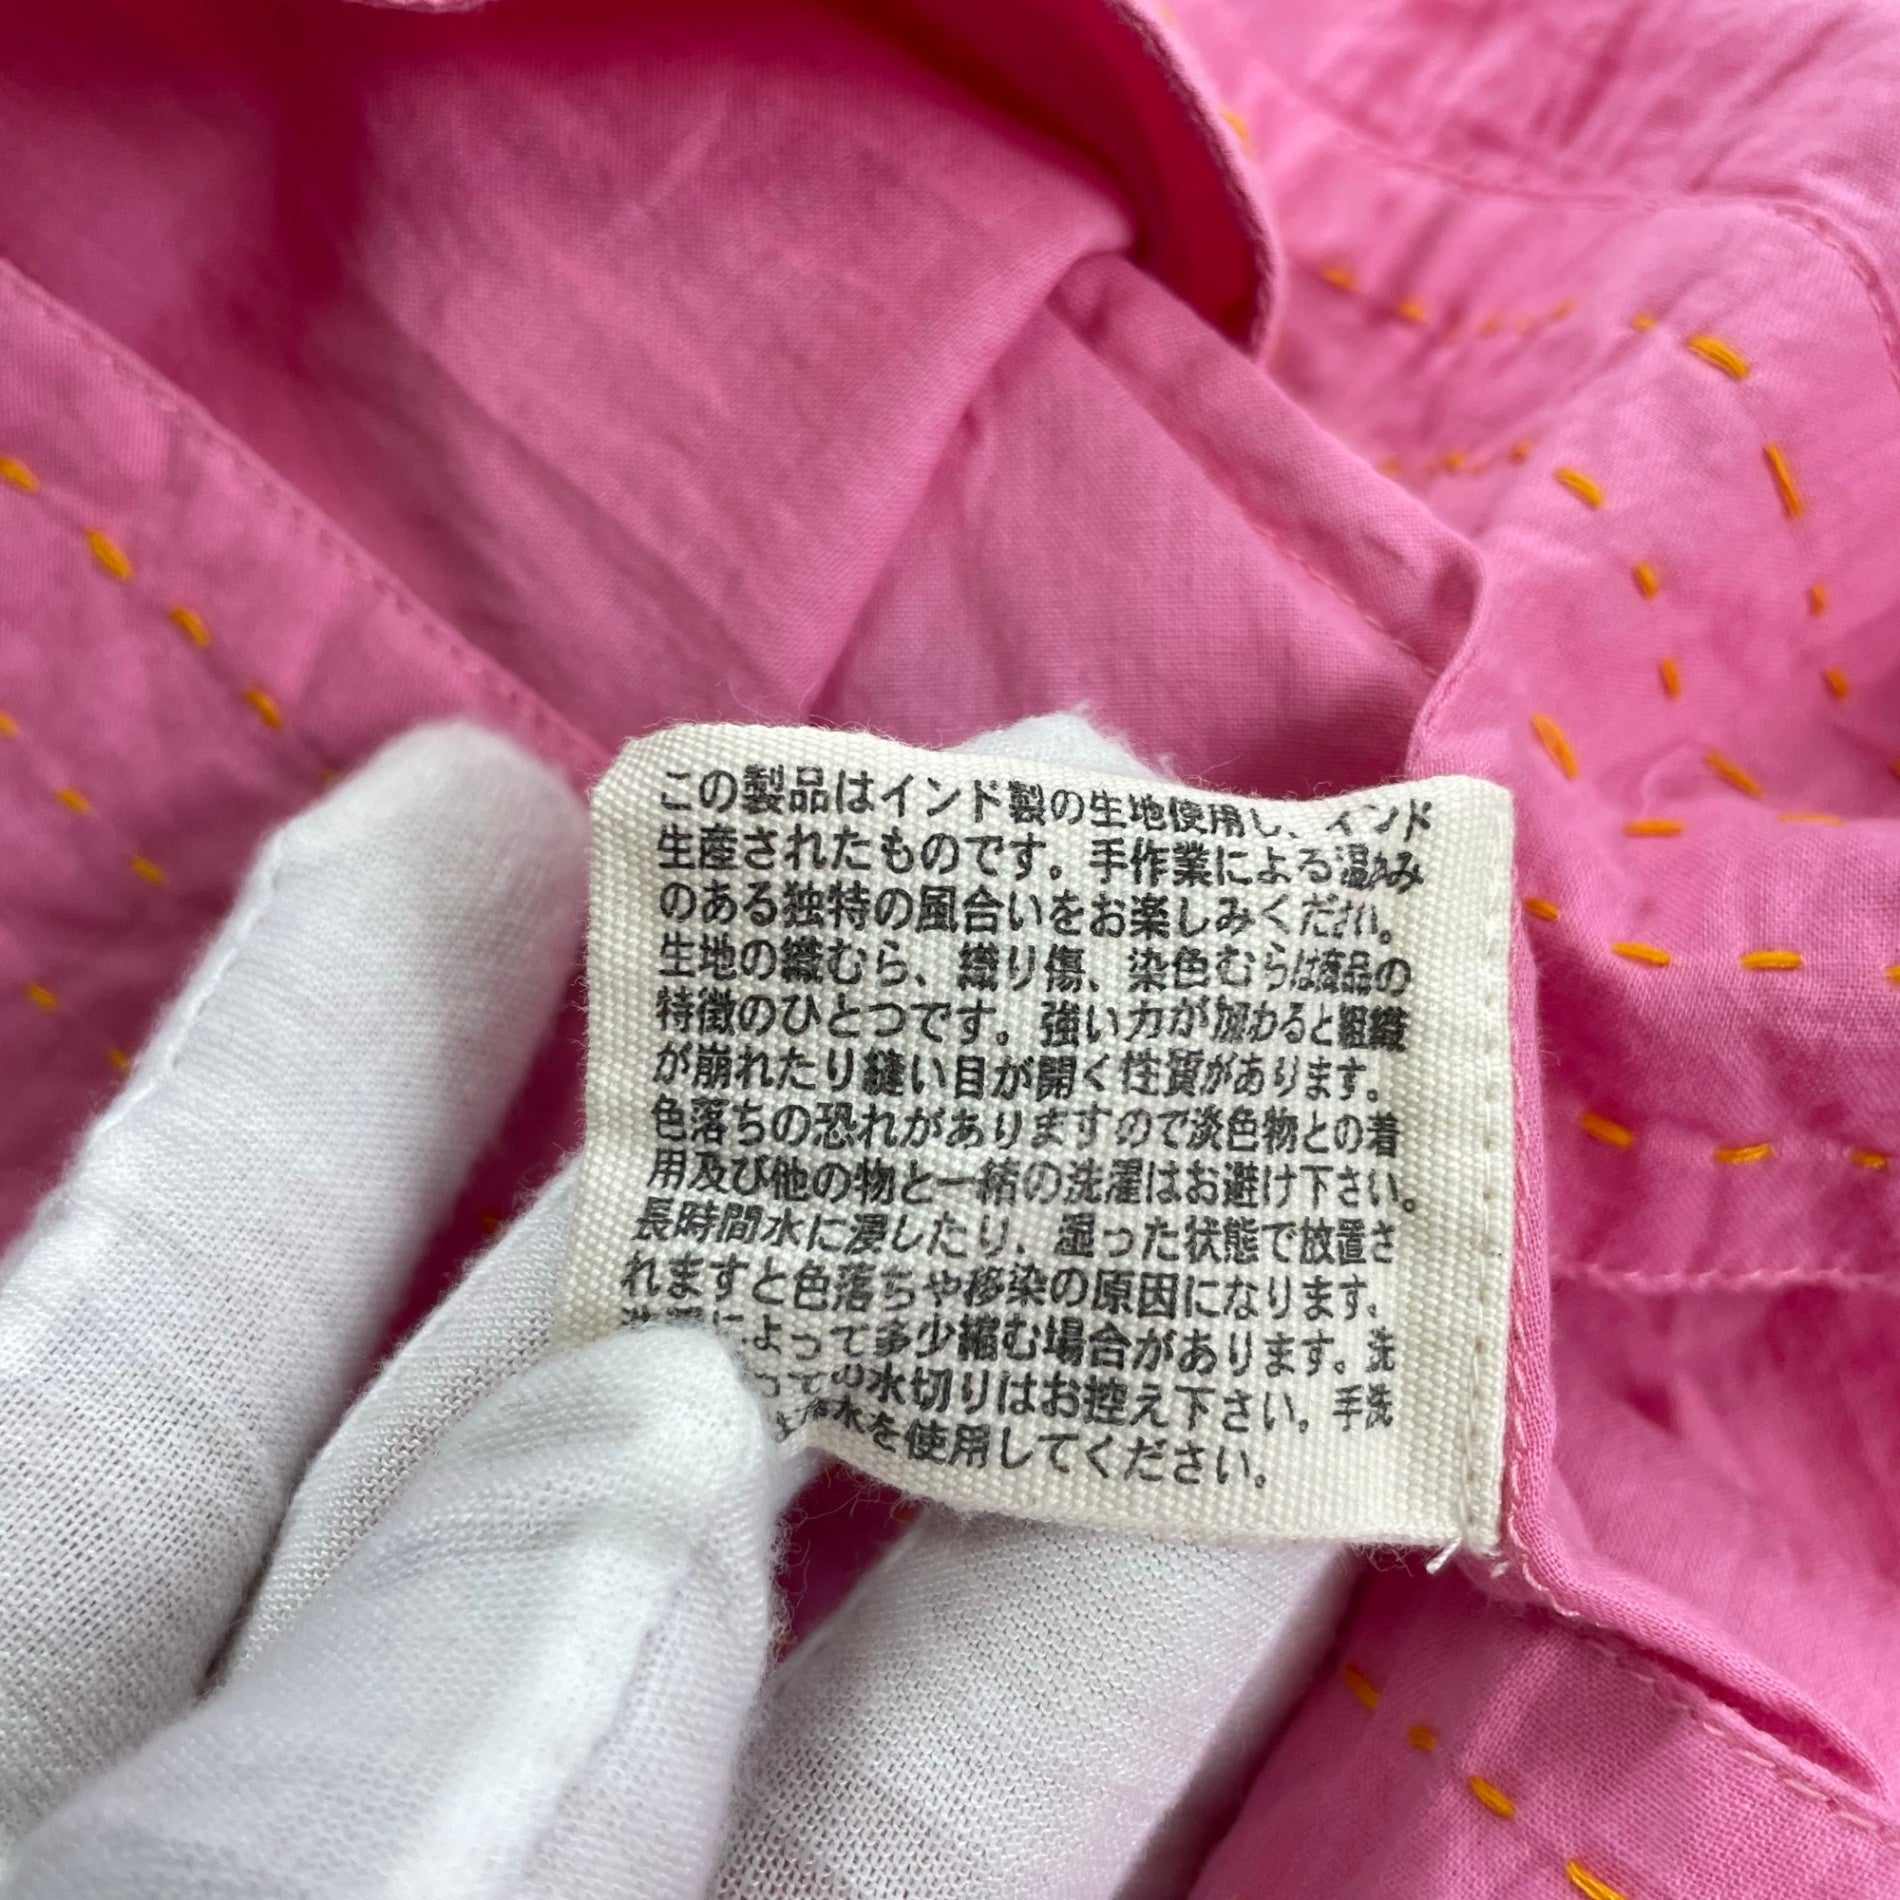 この製品はインド製の生地使用し、インド
生産されたものです。手作業による温かみ
のある独特の風合いをお楽しみください。
生地の織むら、織り傷、染色むらは商品の
特徴のひとつです。強い力が加わると組織
が崩れたり縫い目が開く性質があります。
色落ちの恐れがありますので淡色物との着
用及び他の物と一緒の洗濯はお避け下さい。
長時間水に浸したり、湿った状態で放置さ
れますと色落ちや移染の原因になります。
によって多少縮む場合があります。洗
っての水切りはお控え下さい。手洗
水を使用してください。